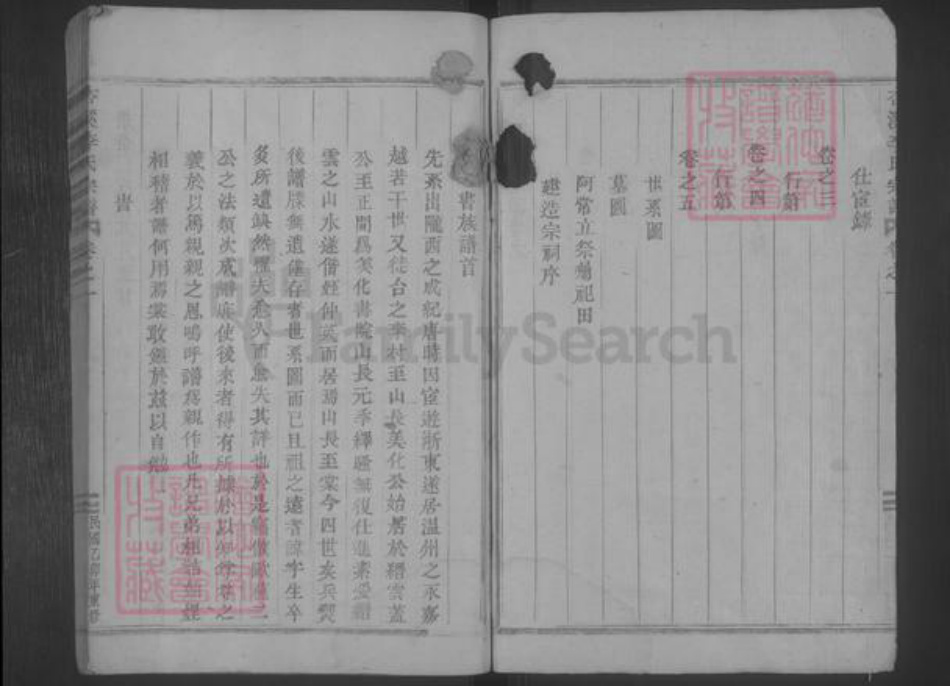 仕宦錄
卷之三
行第
卷之四
行第
卷之五
世系圖
墓圖
阿常立祭嫂祀田
建造宗祠序
書族譜首
先系出隴西之成紀唐時因宦遊浙東遂居溫州之永嘉
越若干世又徙台之李村至山長美化公始居於縉雲蓋
公至正間爲美化書院山長元季繹騷無復仕進素愛縉
雲之山水遂偕姪仲英而居焉山長至棠今四世矣兵燹
後譜牒無遺僅存者世系圖而已且祖之遠者諱字生卒
多所遺缺然懼夫愈久而愈失其詳也於是竊倣歐陽
公之法類次成譜庶使後來者得有所據於以
義於以篤親親之恩嗚呼譜爲親作也凡兄弟
相稽者譜何用焉棠敢鑑於茲以自勉
FamilySearch